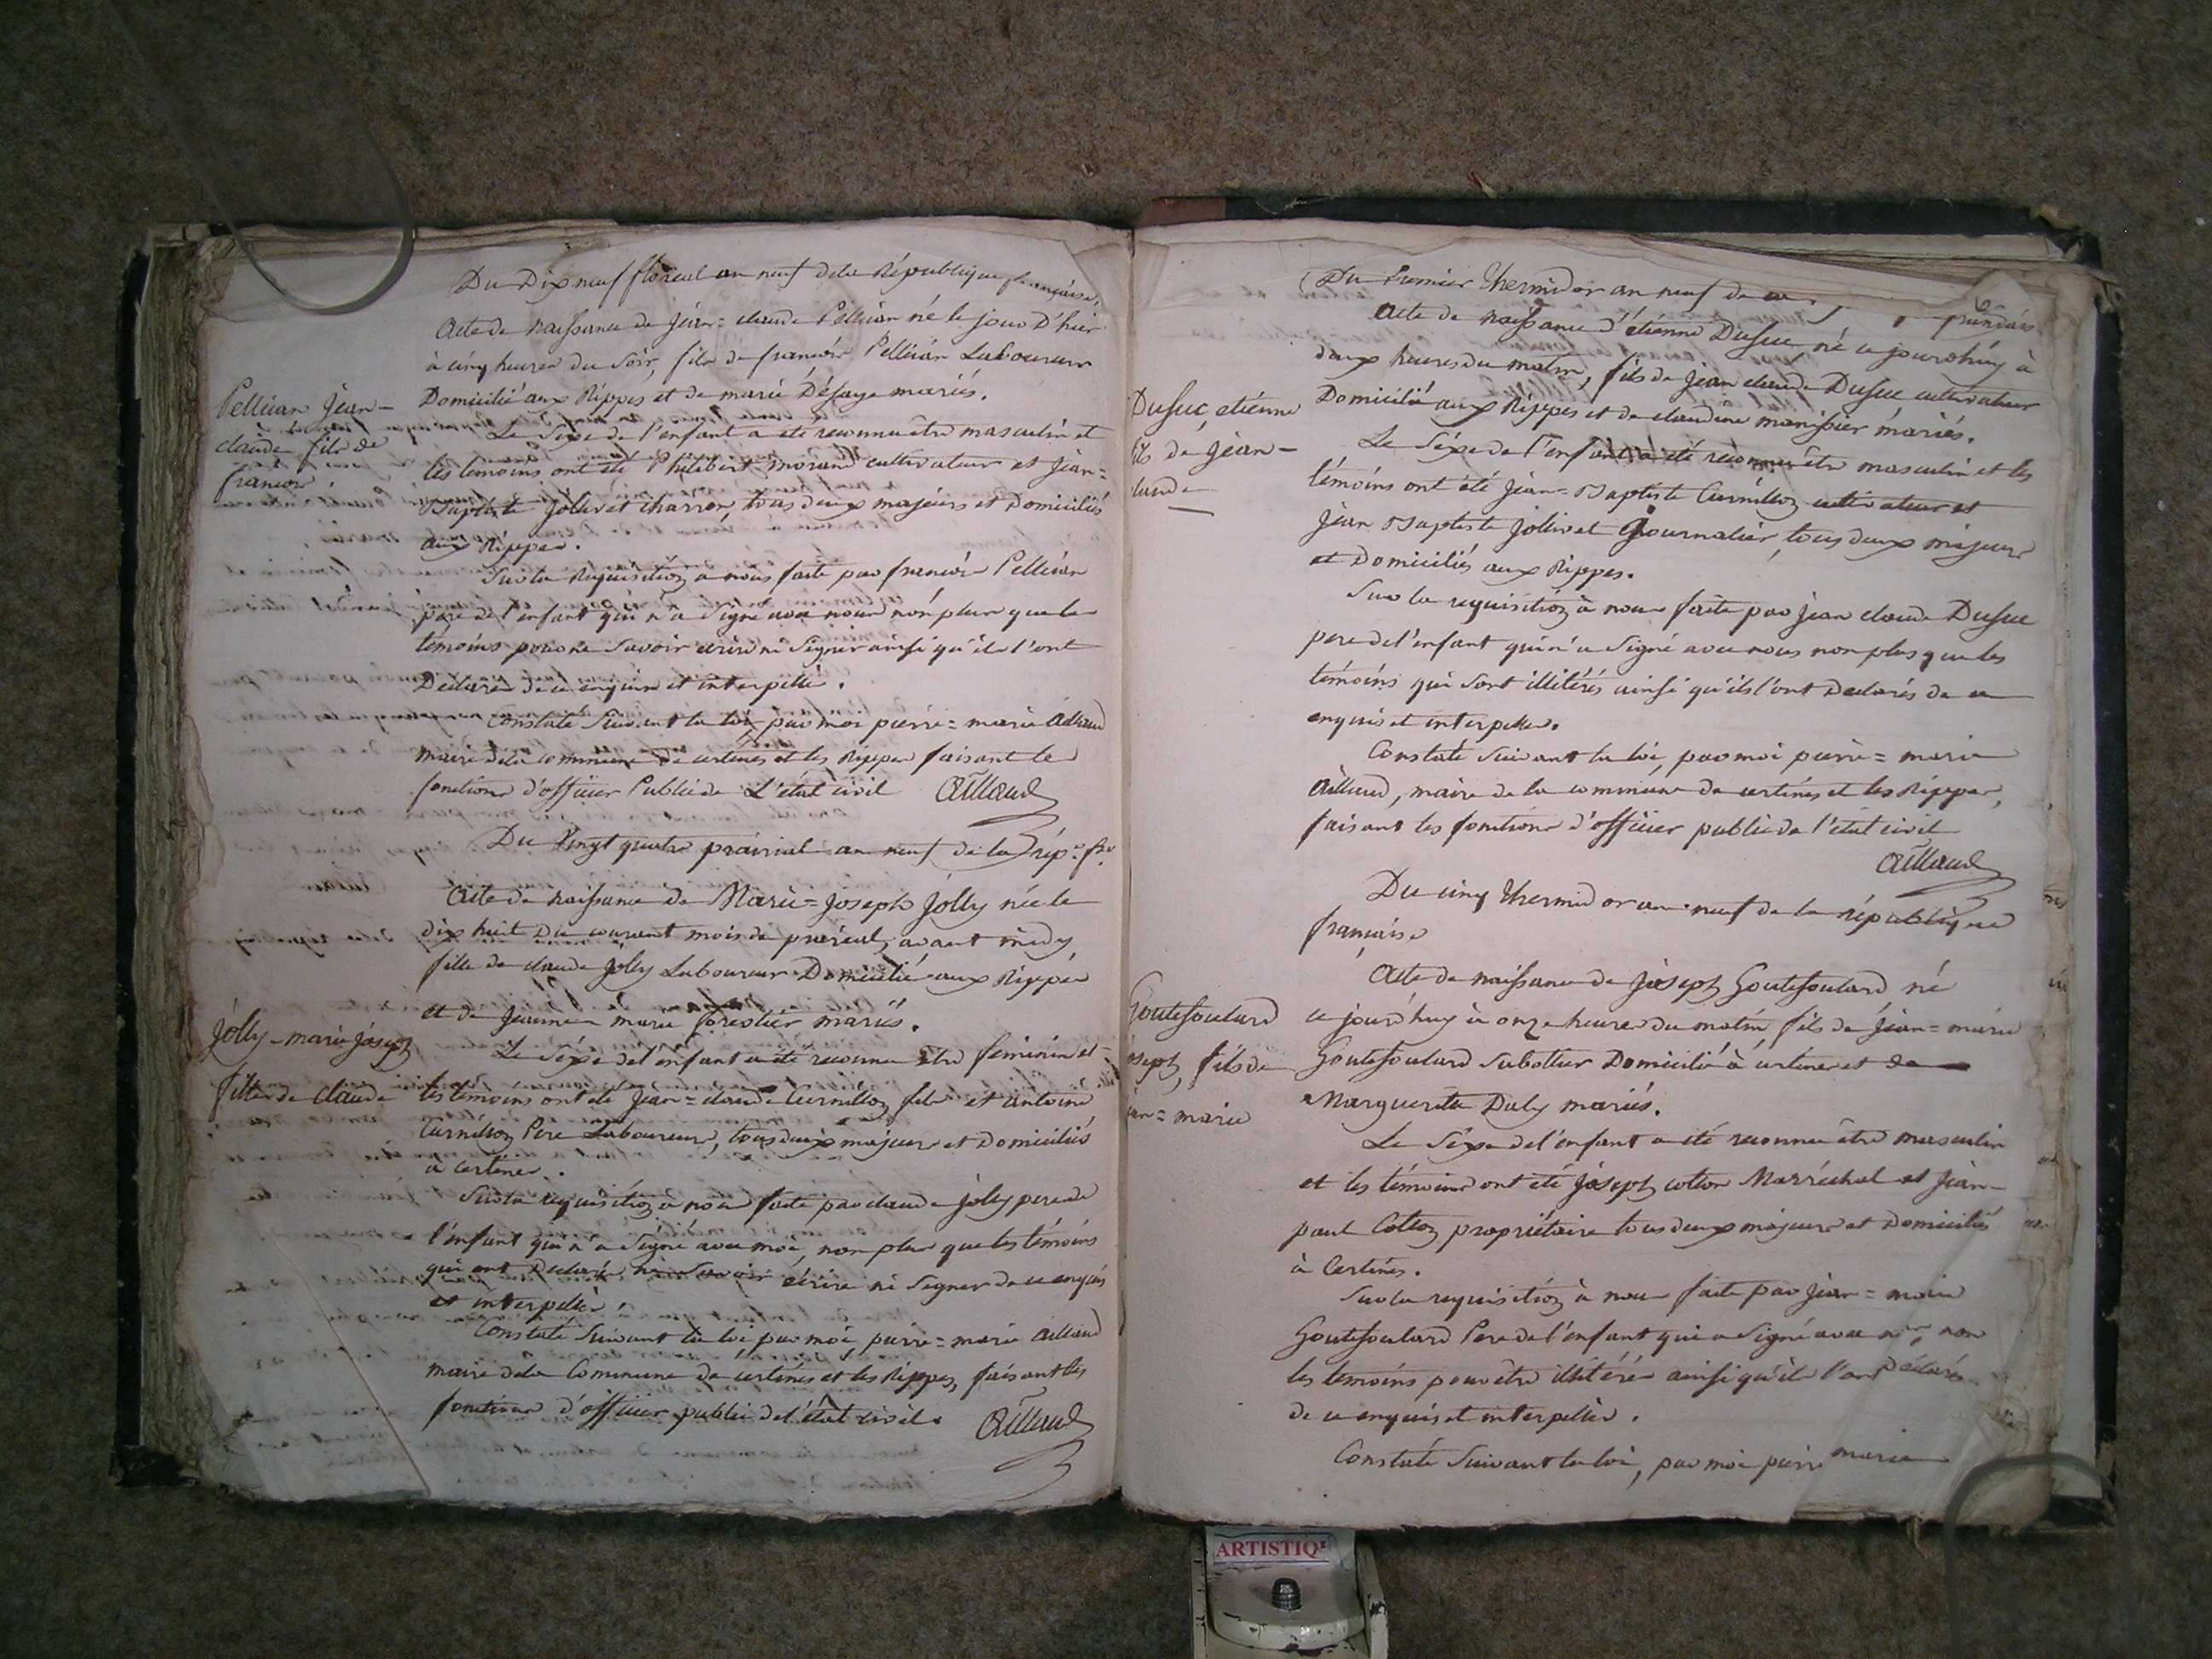 Du Dix neuf floreal an neuf dela République françaises.
Acte de naissance de Jean=claude Pelliian né le jour D'hier
à cinq heures du soir, fils de francois Pelliian Laboureur
Domicilié aux Rippes et de marie Désaye mariés.
Pelliian Jean-
claude fils de
francois
Le Séxe de l'enfant a eté reconnu être masculin et
les témoins ont été Philibert Morand cultivateur et Jean=
Baptiste Jollivet charron, tous deux majeurs et Domiciliés
aux Rippes.
Sur la Réquisition a nous faite par francois Pelliian
père de l'enfant qui n'a Signé avec nous non plus que les
témoins pour ne Savoir écrire ni Signer ainsi qu'ils l'ont
Déclarés de ce enquis et interpellé.
Constaté Suivant la loi, par moi pierre=marie Aillaud
maire dela commune de certines et les Rippes faisant les
fonctions d'officier Public de L'état civil Aillaud
Du Vingt quatre prairial an neuf de la rép.e fr.e
Acte de naissance de Marie=Joseph Jolly née le
dix huit Du courant mois de prairial, avant midy
fille de claude Jolly Laboureur Domicilié aux Rippes
et de Jeanne marie forestier mariés.
Jolly-marie Joseph
fille de claude
Le Séxe del'enfant a été reconnu etre féminin et
les témoins ont été Jean=claude Curnillon fils et antoine
Curnillon Pere Laboureurs, tous deux majeurs et Domiciliés
à Certines.
Sur la requisition à nous faite par claude Jolly pere de
l'enfant qui n'a Signé avec moi, non plus que les témoins
qui ont Déclaré ne Savoir écrire ni Signer de ce enquis
et interpellés.
Constaté Suivant la loi, par moi, pierre=marie Aillaud
maire dela Commune de certines et les Rippes, faisant les
fonctions d'officier public del'état civil. Aillaud
Du Premier Thermidor an neuf de
Acte de naissance d'étienne Dusuc, né ce jourd'huy à
deux heures du matin, fils de Jean claude Dusuc cultivateur
Domicilié aux Rippes et de claudine manissier mariés.
Dusuc, etienne
fils de Jean-
laude
Le Séxe de l'enfant a été reconnu être masculin et les
témoins ont été Jean=Baptiste Curnillon cultivateur et
Jean Baptiste Jollivet Journalier, tous deux majeurs
et Domiciliés aux Rippes.
Sur la requisition à nous faite par Jean claude Dusuc
pere de l'enfant qui n'a Signé avec nous non plus que les
témoins qui sont illitérés ainsi qu'ils l'ont Déclarés de ce
enquis et interpellés.
Constaté Suivant la loi, par moi pierre=marie
Aillaud, maire de la commune de certines et les Rippes,
faisant les fonctions d'officier public de l'état civil
Aillaud
Du cinq Thermidor an neuf de la république
française
Acte de naissance de Joseph Goutesoulard né
ce jourd'huy à onze heures du matin fils de Jean=marie
Goutesoulard Sabottier Domicilié à certines et de
Marguerite Daly mariés.
Goutesoulard
oseph, fils de
ean=marie
Le Séxe de l'enfant a été reconnu être masculin
et les témoins ont été Joseph cotton Marréchal et Jean-
paul Cotton propriétaire tous deux majeurs et Domiciliés
à Certines.
Sur la requisition à nous faite par Jean=marie
Goutesoulard Pere de l'enfant qui a Signé avec n.s, non
les témoins pour être illitérés ainsi qu'ils l'ont déclarés
de ce enquis et interpellés.
Constaté Suivant la loi, par moi pierre marie
ARTISTIQ